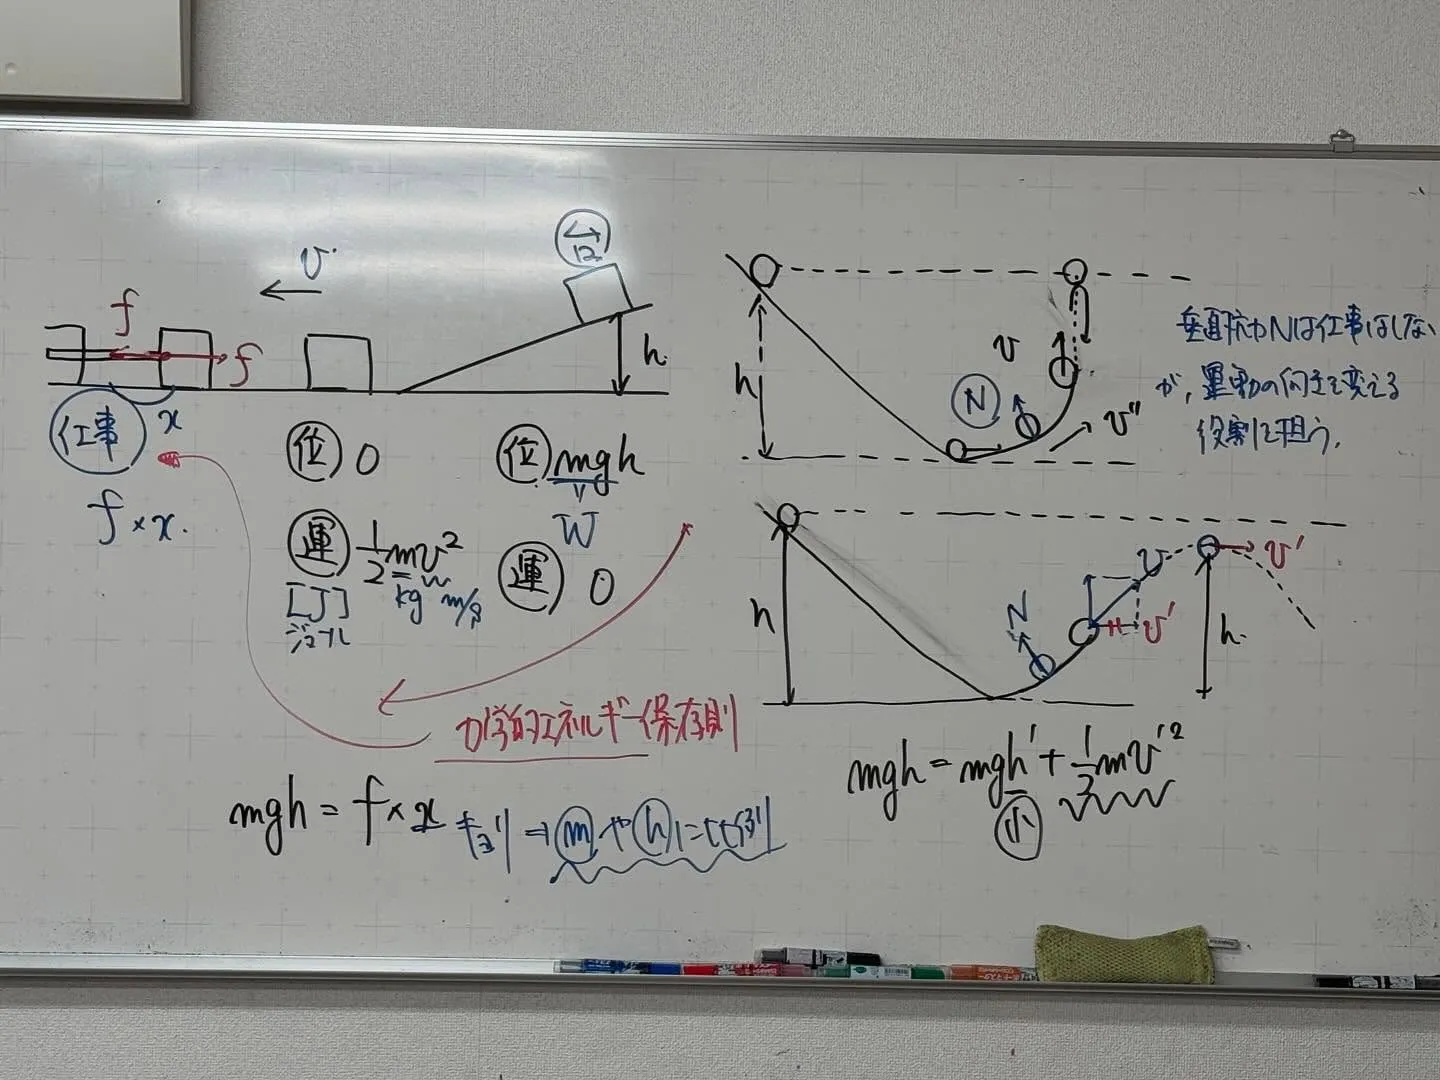 v
f
f
h
仕事
x
f × x.
位 0
位 mgh
W
運 1/2 mv²
kg m/s
[J]
ジュール
運 0
力学的エネルギー保存則
mgh = f × x
⇒ m や h に比例
h
v
N
v"
垂直抗力Nは仕事はしない
が、運動の向きを変える
役割を担う.
h
N
v
v'
v'
h
mgh = mgh' + 1/2 mv'²
小